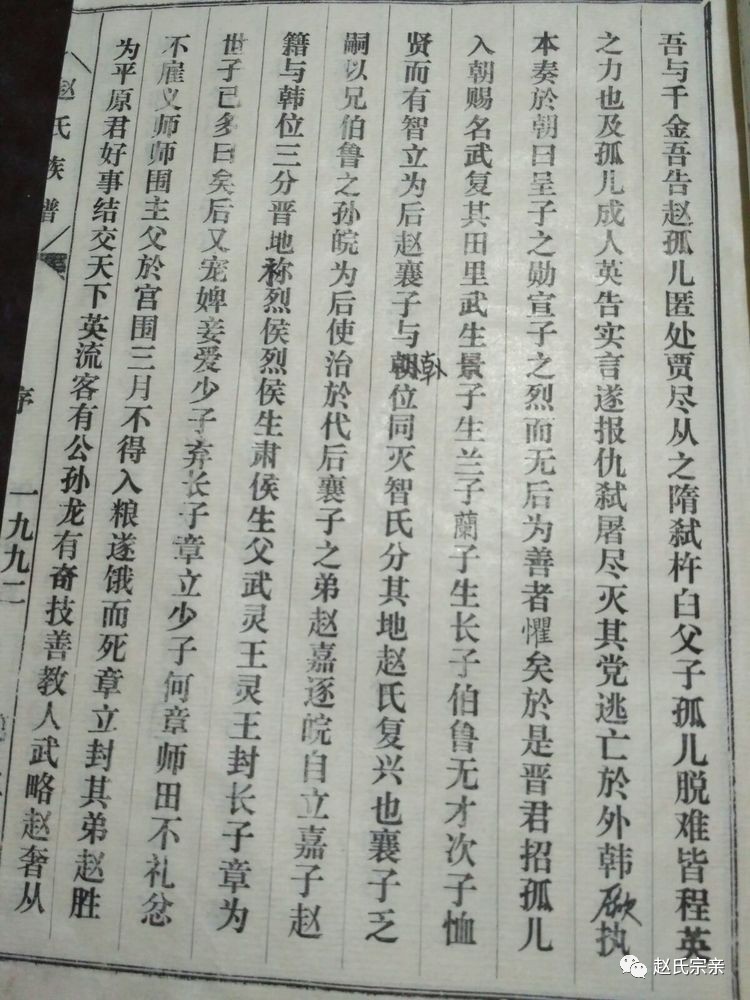 吾与千金吾告赵孤儿匿处贾尽从之隋弑杵臼父子孤儿脱难皆程英
之力也及孤儿成人英告实言遂报仇弑屠尽灭其党逃亡於外韩厥执
本奏於朝曰呈子之勋宣子之烈而无后为善者懼矣於是晋君招孤儿
入朝赐名武复其田里武生景子生兰子蘭子生长子伯鲁无才次子恤
贤而有智立为后赵襄子与韩位同灭智氏分其地赵氏复兴也襄子乏
嗣以兄伯鲁之孙皖为后使治於代后襄子之弟赵嘉逐皖自立嘉子赵
籍与韩位三分晋地称烈侯烈侯生肃侯生父武灵王灵王封长子章为
世子已多曰矣后又宠婢妾爱少子弃长子章立少子何章师田不礼忿
不雇义师师围主父於宫围三月不得入粮遂饿而死章立封其弟赵胜
为平原君好事结交天下英流客有公孙龙有奇技善教人武略赵奢从
赵氏族谱
序
一九九二
赵氏宗亲